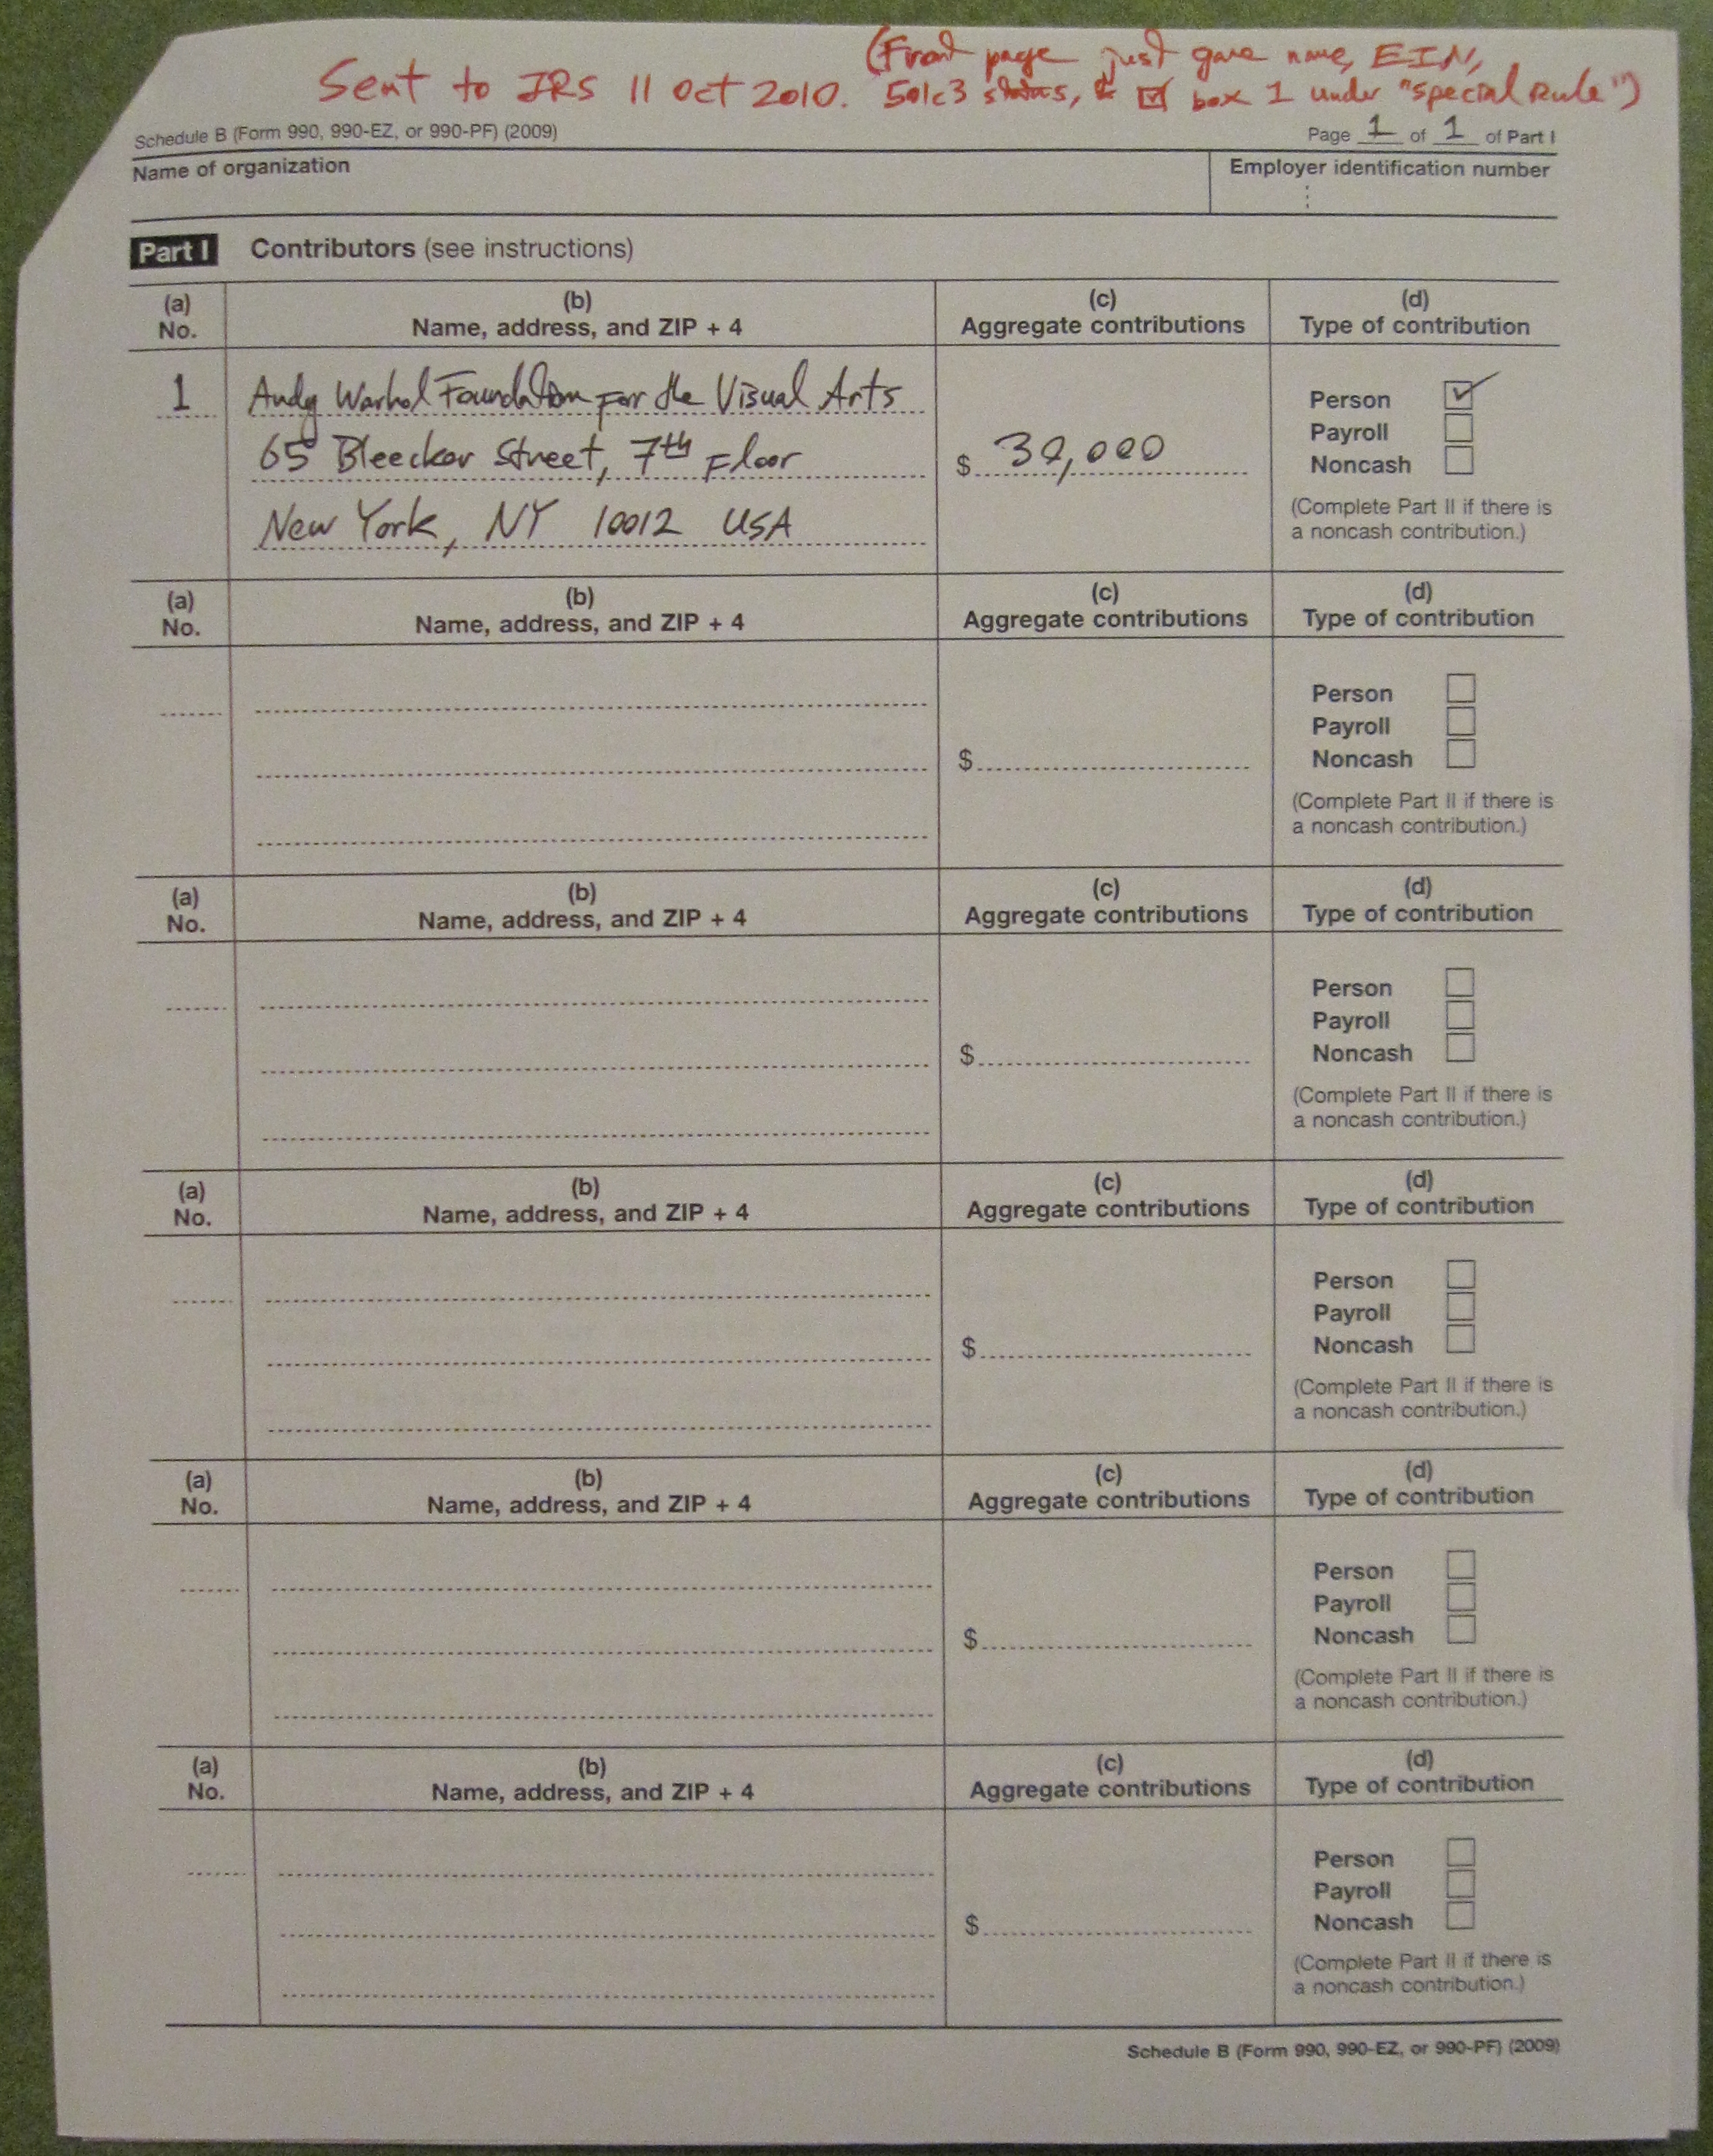 (Front page just gave name, EIN,
Sent to IRS 11 Oct 2010. 501c3 status, & ☑ box 1 under "special Rule")
Schedule B (Form 990, 990-EZ, or 990-PF) (2009) Page 1 of 1 of Part I
Name of organization Employer identification number
Part I Contributors (see instructions)
(a) (b) (c) (d)
No. Name, address, and ZIP + 4 Aggregate contributions Type of contribution
1 Andy Warhol Foundation For the Visual Arts Person ☑
Payroll
65 Bleecker Street, 7th Floor $ 30,000 Noncash
New York, NY 10012 USA (Complete Part II if there is
a noncash contribution.)
(a) (b) (c) (d)
No. Name, address, and ZIP + 4 Aggregate contributions Type of contribution
Person
Payroll
$ Noncash
(Complete Part II if there is
a noncash contribution.)
(a) (b) (c) (d)
No. Name, address, and ZIP + 4 Aggregate contributions Type of contribution
Person
Payroll
$ Noncash
(Complete Part II if there is
a noncash contribution.)
(a) (b) (c) (d)
No. Name, address, and ZIP + 4 Aggregate contributions Type of contribution
Person
Payroll
$ Noncash
(Complete Part II if there is
a noncash contribution.)
(a) (b) (c) (d)
No. Name, address, and ZIP + 4 Aggregate contributions Type of contribution
Person
Payroll
$ Noncash
(Complete Part II if there is
a noncash contribution.)
(a) (b) (c) (d)
No. Name, address, and ZIP + 4 Aggregate contributions Type of contribution
Person
Payroll
$ Noncash
(Complete Part II if there is
a noncash contribution.)
Schedule B (Form 990, 990-EZ, or 990-PF) (2009)